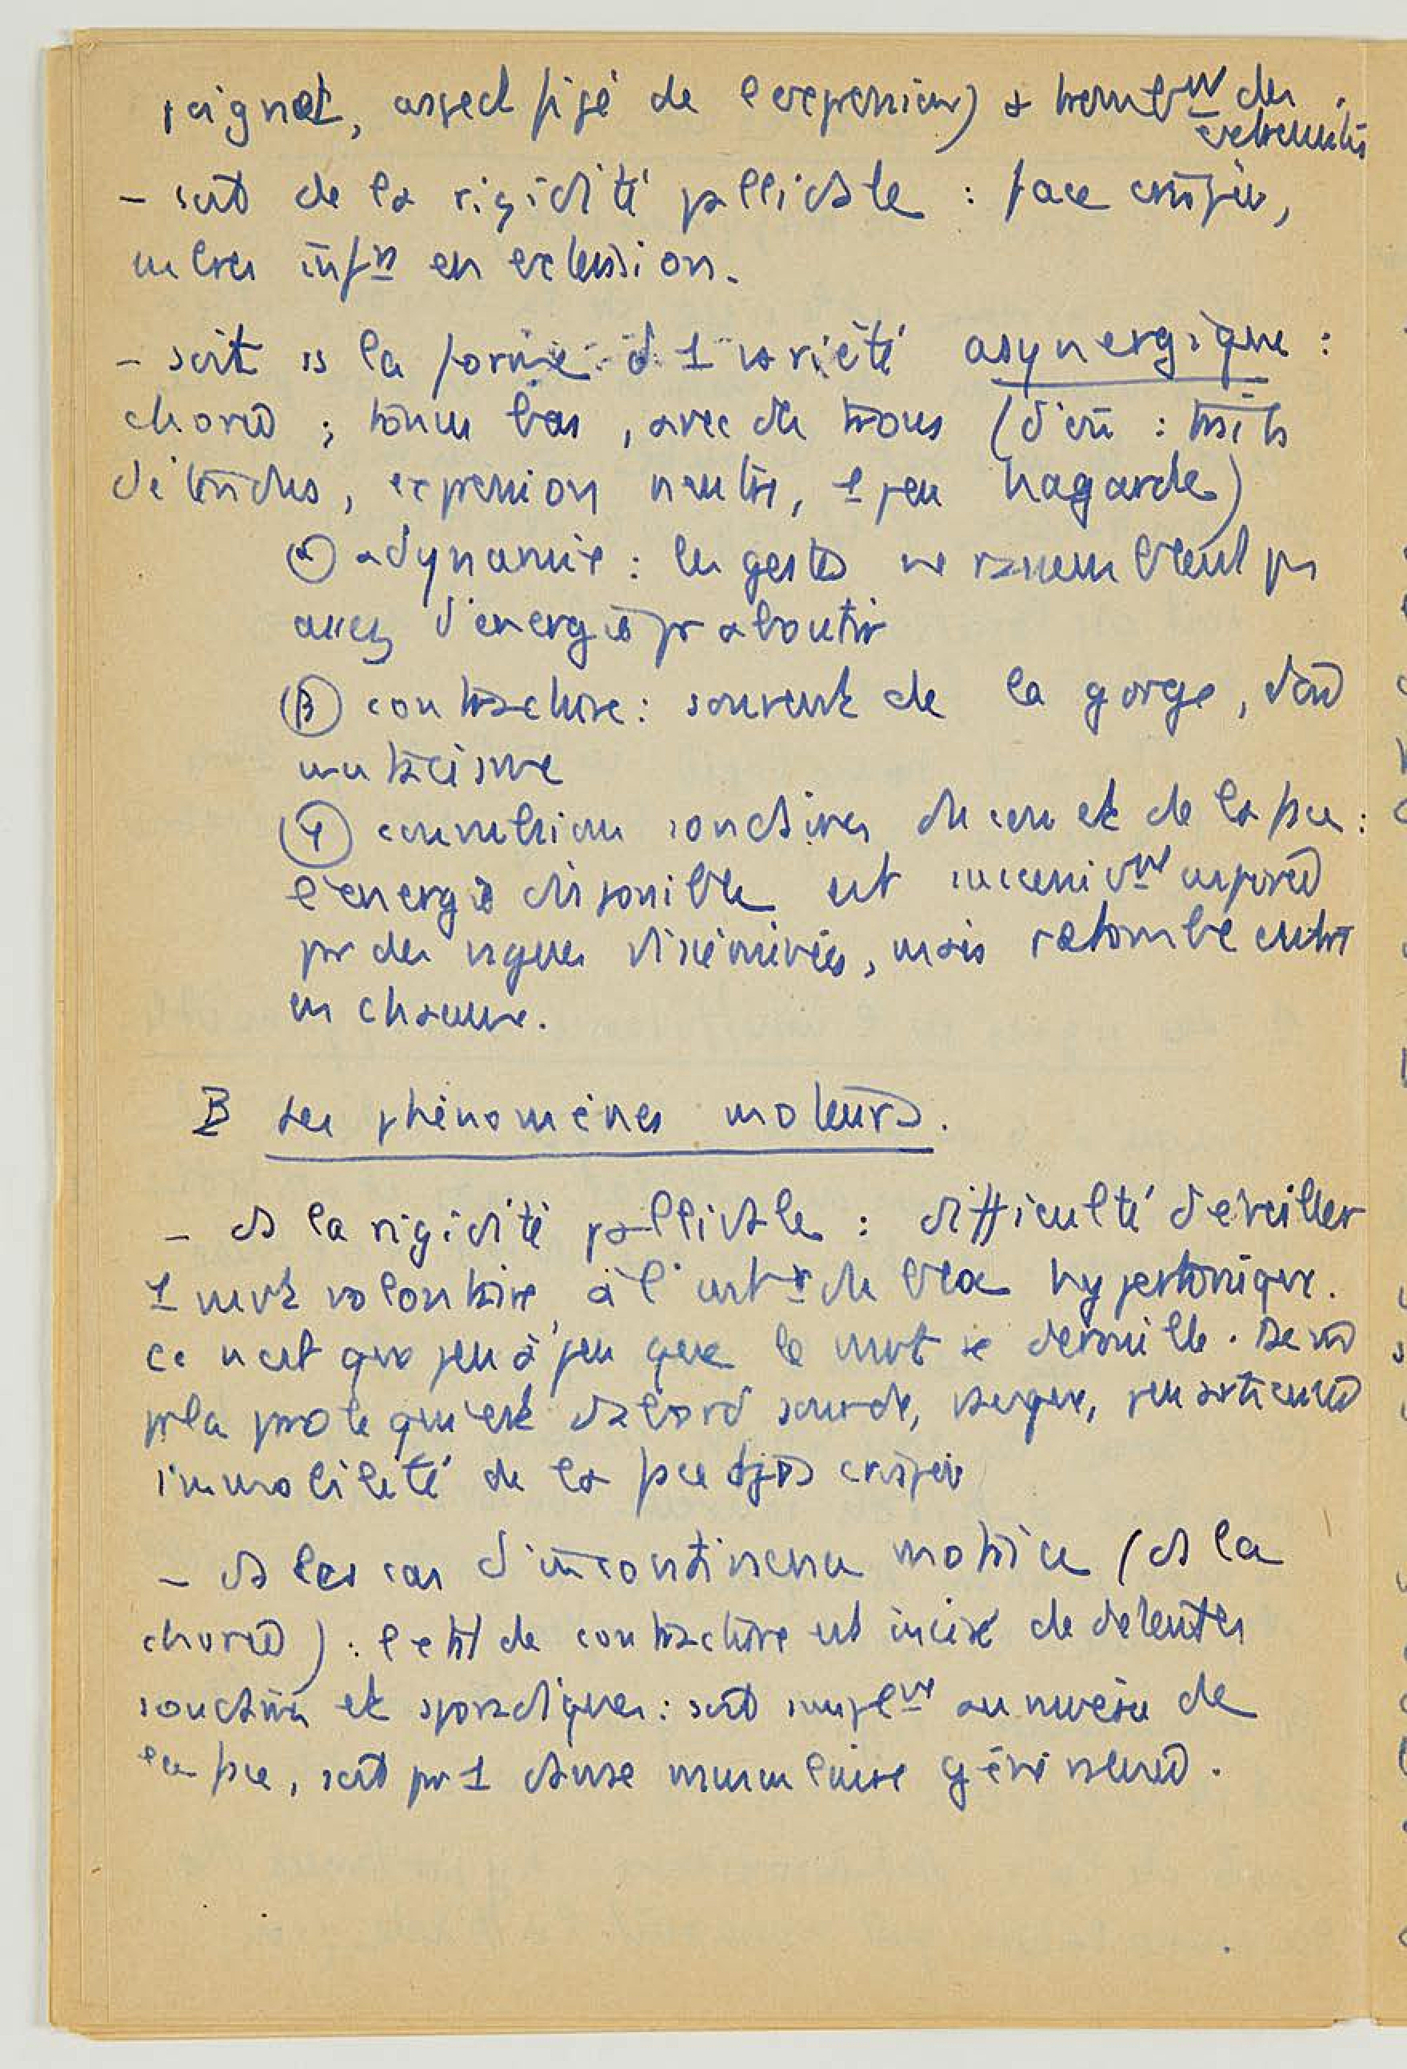 poignet, aspect figé de l'expression) & tremblmt des
extrémités
- soit de la rigidité pallidale : face crispée,
mbres infrs en extension.
- soit ss la forme d'1 variété asynergique :
chorée ; tonus bas, avec des trous (d'où : traits
détendus, expression neutre, 1 peu hagarde)
(α) adynamie : les gestes ne rassemblent pas
assez d'énergie pr aboutir
(β) contracture : souvent de la gorge, d'où
mutacisme
(γ) convulsions soudaines du cou et de la face :
l'énergie disponible est
pr des vagues disséminées, mais retombe entre
en chaume.
B Les phénomènes moteurs.
- ds la rigidité pallidale : difficulté d'éveiller
1 mvt volontaire, à l' du bloc hypertonique.
Ce n'est que peu à peu que le mvt se dérouille.
pr la parole qui est d'abord sourde, vague, peu articulée
immobilité de la face tjrs crispée
- ds les cas d'incontinence motrice (ds la
chorée) : l'état de contracture est incisé de détentes
soudaines et sporadiques : soit simplmt au niveau de
la face, soit pr 1 danse musculaire généralisée.